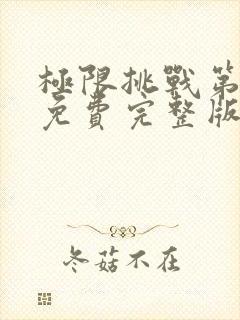 極限挑戰第
免費完整版
冬菇不在